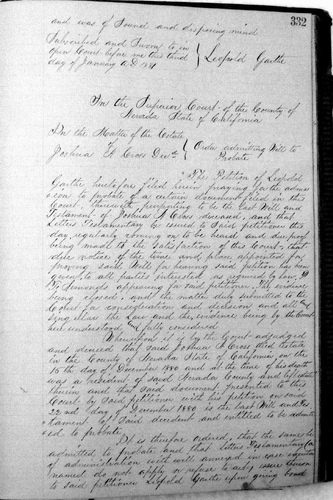 332
and was of sound and disposing mind
Subscribed and Sworn to in
open Court before me this third
day of January A.D. 1881
Leopold Garthe
In the Superior Court of the County of
Nevada State of California
In the Matter of the Estate
Joshua A Cross Decd
Order admitting Will to
Probate
The Petition of Leopold
Garthe heretofore filed herein praying for the admis
sion to probate of a certain document filed in this
Court, therewith, purporting to be the last Will and
Testament of Joshua A Cross deceased, and that
Letters Testamentary be issued to Said petitioner this
day regularly coming on to be heard and due proof
being made to the Satisfaction of this Court that
due notice of the time and place appointed for
proving said Will for hearing said petition has been
given to all parties interested as required by law,
appearing for said petitioner. The evidence
being closed, and the matter duly submitted to the
Court for consideration and decision and all
the Law and the evidence being by the Court
here understood & fully considered
Wherefore it is by the Court adjudged
and decreed that said Joshua A Cross died testate
in the County of Nevada State of California, on the
15th day of December 1880 and at the time of his death
was a resident of said Nevada County and
therein and the said document presented to this
Court by Said petitioner with his petition on said
22nd day of December 1880 is the last Will and Tes
tament of Said decedent and entitled to be admitt
ed to probate.
It is therefore ordered, that the same be
admitted to probate and that Letters Testamentary
of administration with will annexed in case
named do not apply or refuse to act, issue
to said petitioner Leopold Garthe upon giving bond